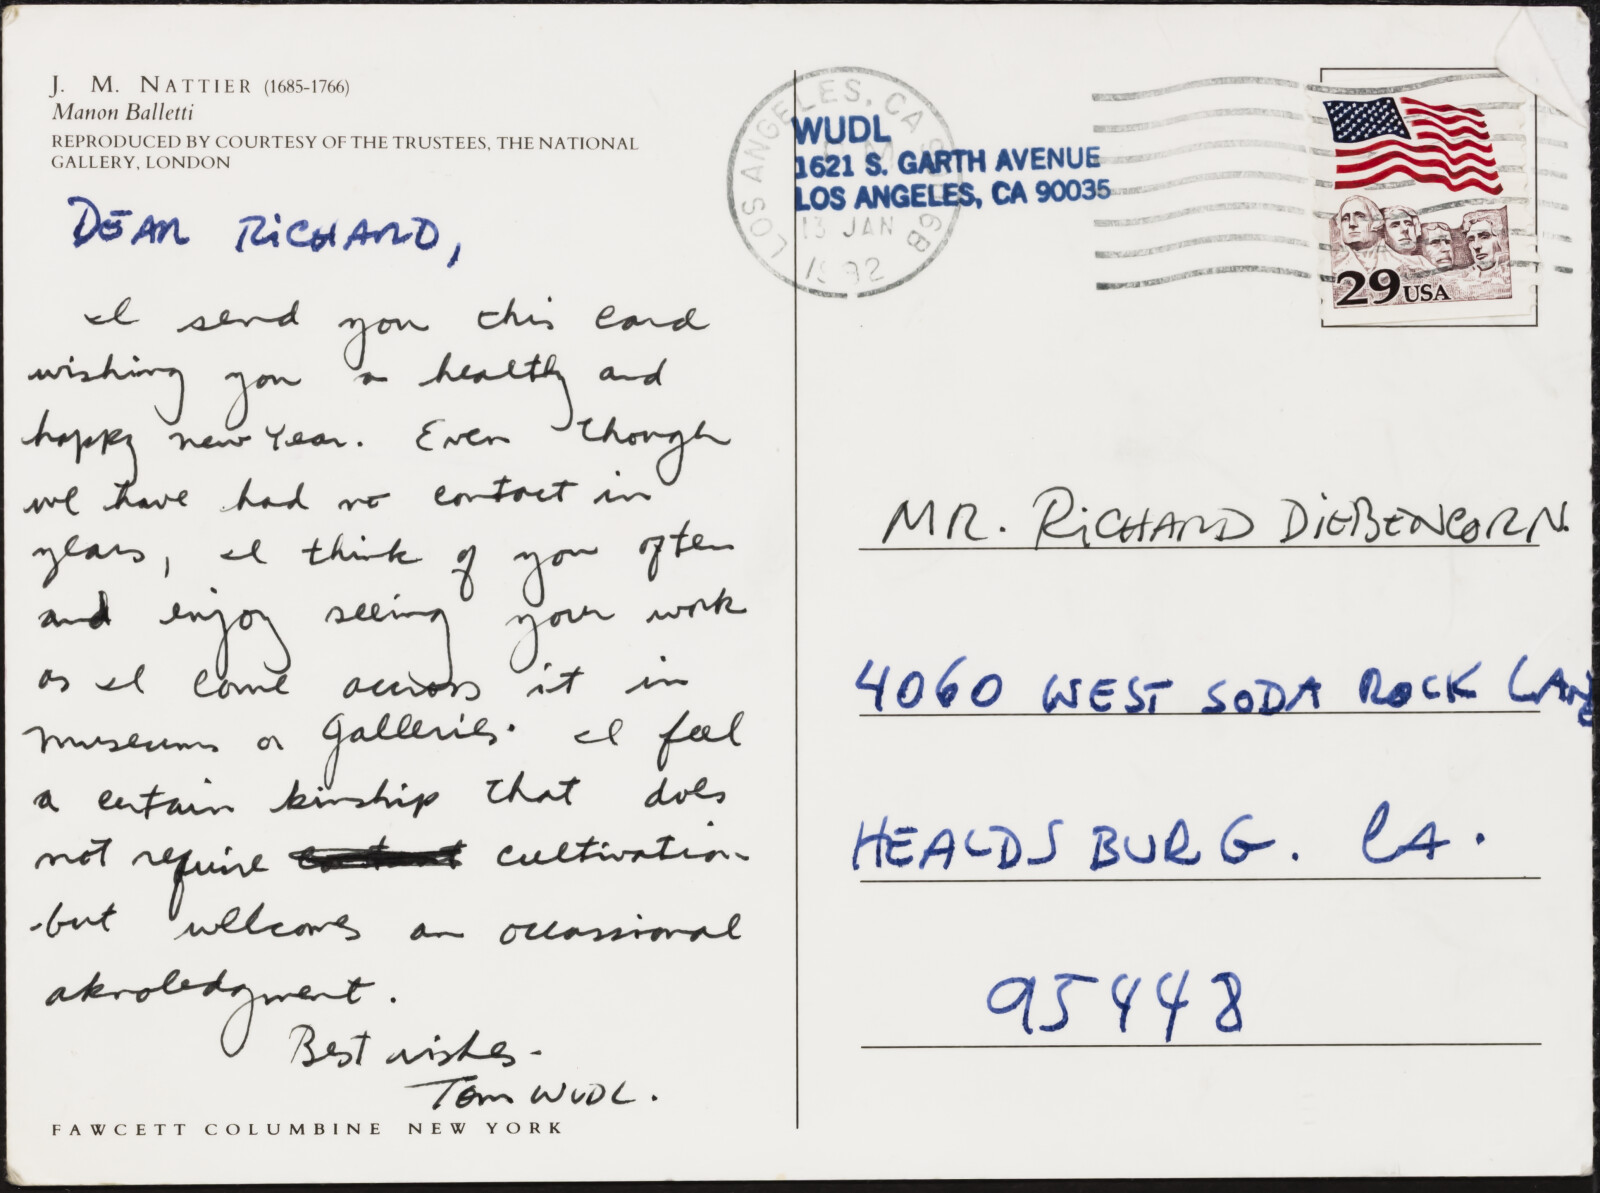 J. M. NATTIER (1685-1766)
Manon Balletti
REPRODUCED BY COURTESY OF THE TRUSTEES, THE NATIONAL
GALLERY, LONDON
DEAR RICHARD,
I send you this card
wishing you a healthy and
happy new Year. Even though
we have had no contact in
years, I think of you often
and enjoy seeing your work
as I come across it in
museums or galleries. I feel
a certain kinship that does
not require cultivation
but wellcomes an occassional
aknoledgment.
Best wishes-
Tom WUDL.
FAWCETT COLUMBINE NEW YORK
LOS ANGELES, CA
13 JAN
1992
WUDL
1621 S. GARTH AVENUE
LOS ANGELES, CA 90035
29 USA
MR. RICHARD DIEBENCORN
4060 WEST SODA ROCK LANE
HEALDSBURG. CA.
95448